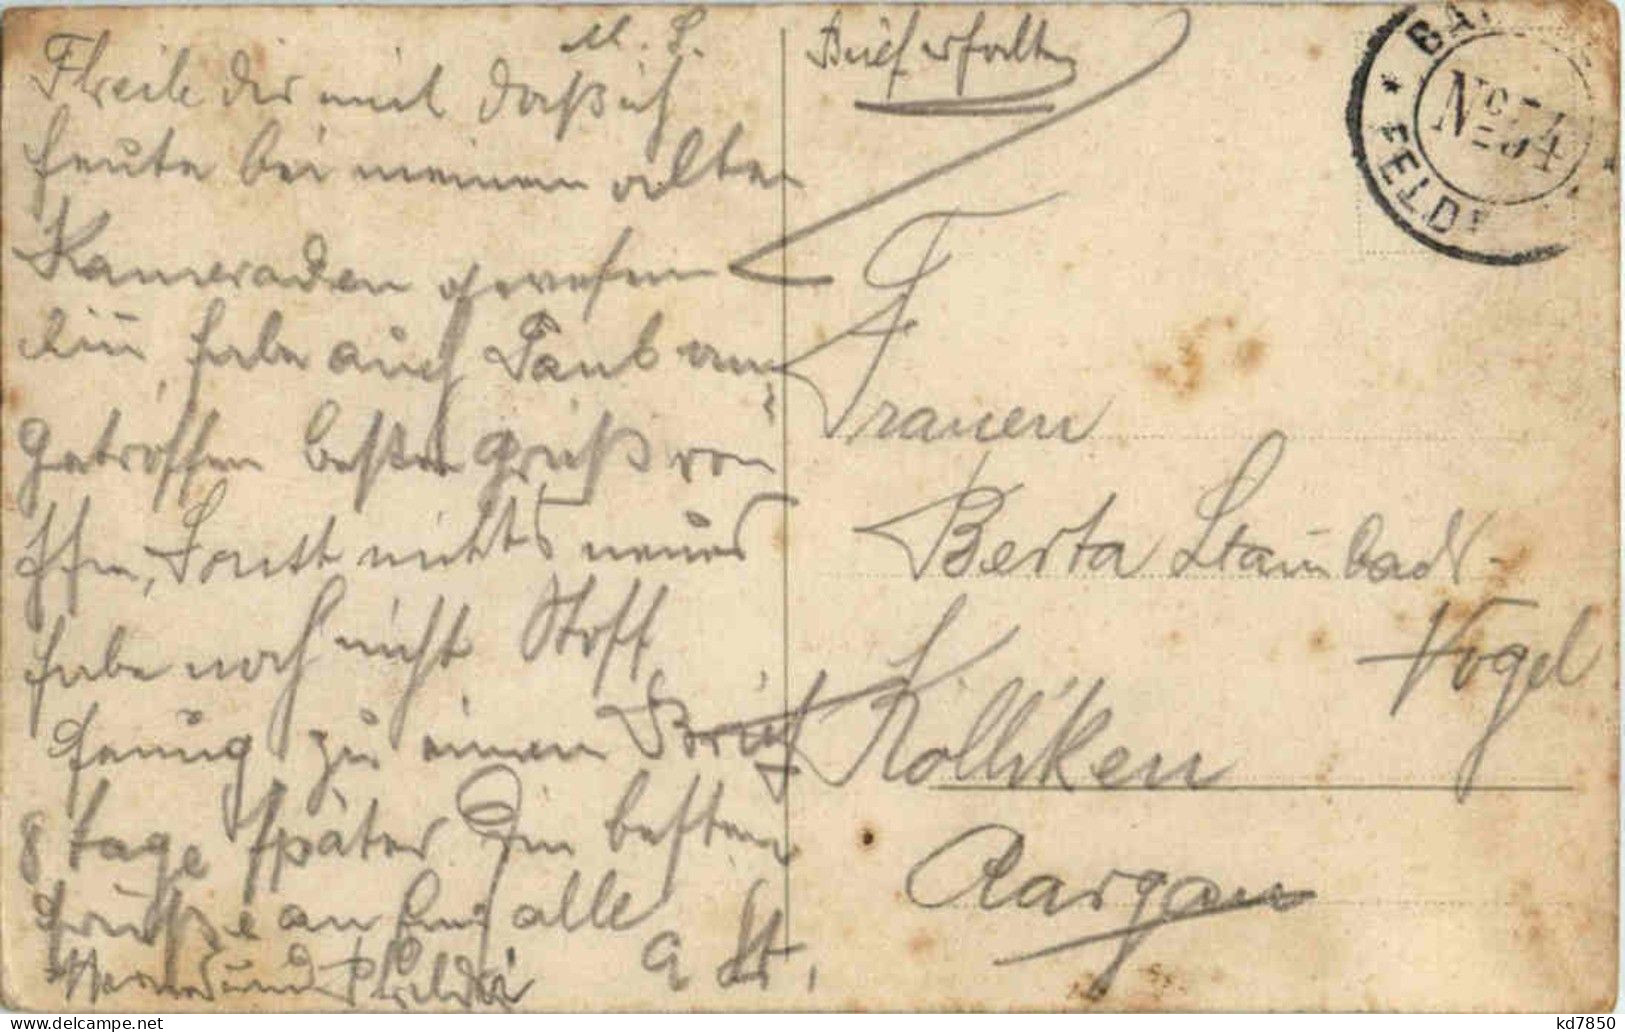 M. L.
Theile dir mit daß ich
heute bei meinen alten
Kameraden gewesen
bin, habe auch Paul an-
getroffen beste Grüß von
Ihm, Sonst nichts neues
habe noch nicht Stoff
genug zu einen Brief
8 tage später Die besten
Grüße an Euch alle
und
G. St.
Brief erhalten
Frauen
Berta Stambach-
Vogel
Kölliken
Aargau
BAT
No 54
FELDP
kd7850